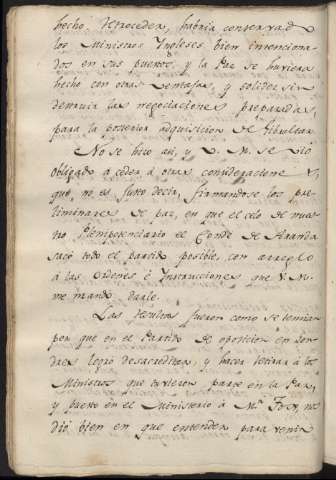 hecho retroceder, habria conservado
los Ministros Yngleses bien intenciona-
dos en sus puestos, y la Paz se huviera
hecho con otras ventajas, y solidez, sin
destruir las negociaciones preparadas,
para la posterior adquisicion de Gibraltar.
No se hizo asi, y V. M. se vió
obligado á ceder á otras consideraciones,
que no es justo decir, firmandose los pre-
liminares de paz, en que el celo de nues-
tro Plenipotenciario el Conde de Aranda
sacó todo el partido posible, con arreglo
á las Ordenes é Ynstrucciones que V. M.
me mandó darle.
Las resultas fueron como se temian
por que en el Partido de oposicion en Lon-
dres logró desacreditar, y hacer retirar á los
Ministros que tuvieron parte en la Paz,
y puesto en el Ministerio á Mr. Fox, nos
dió bien en que entender para venir